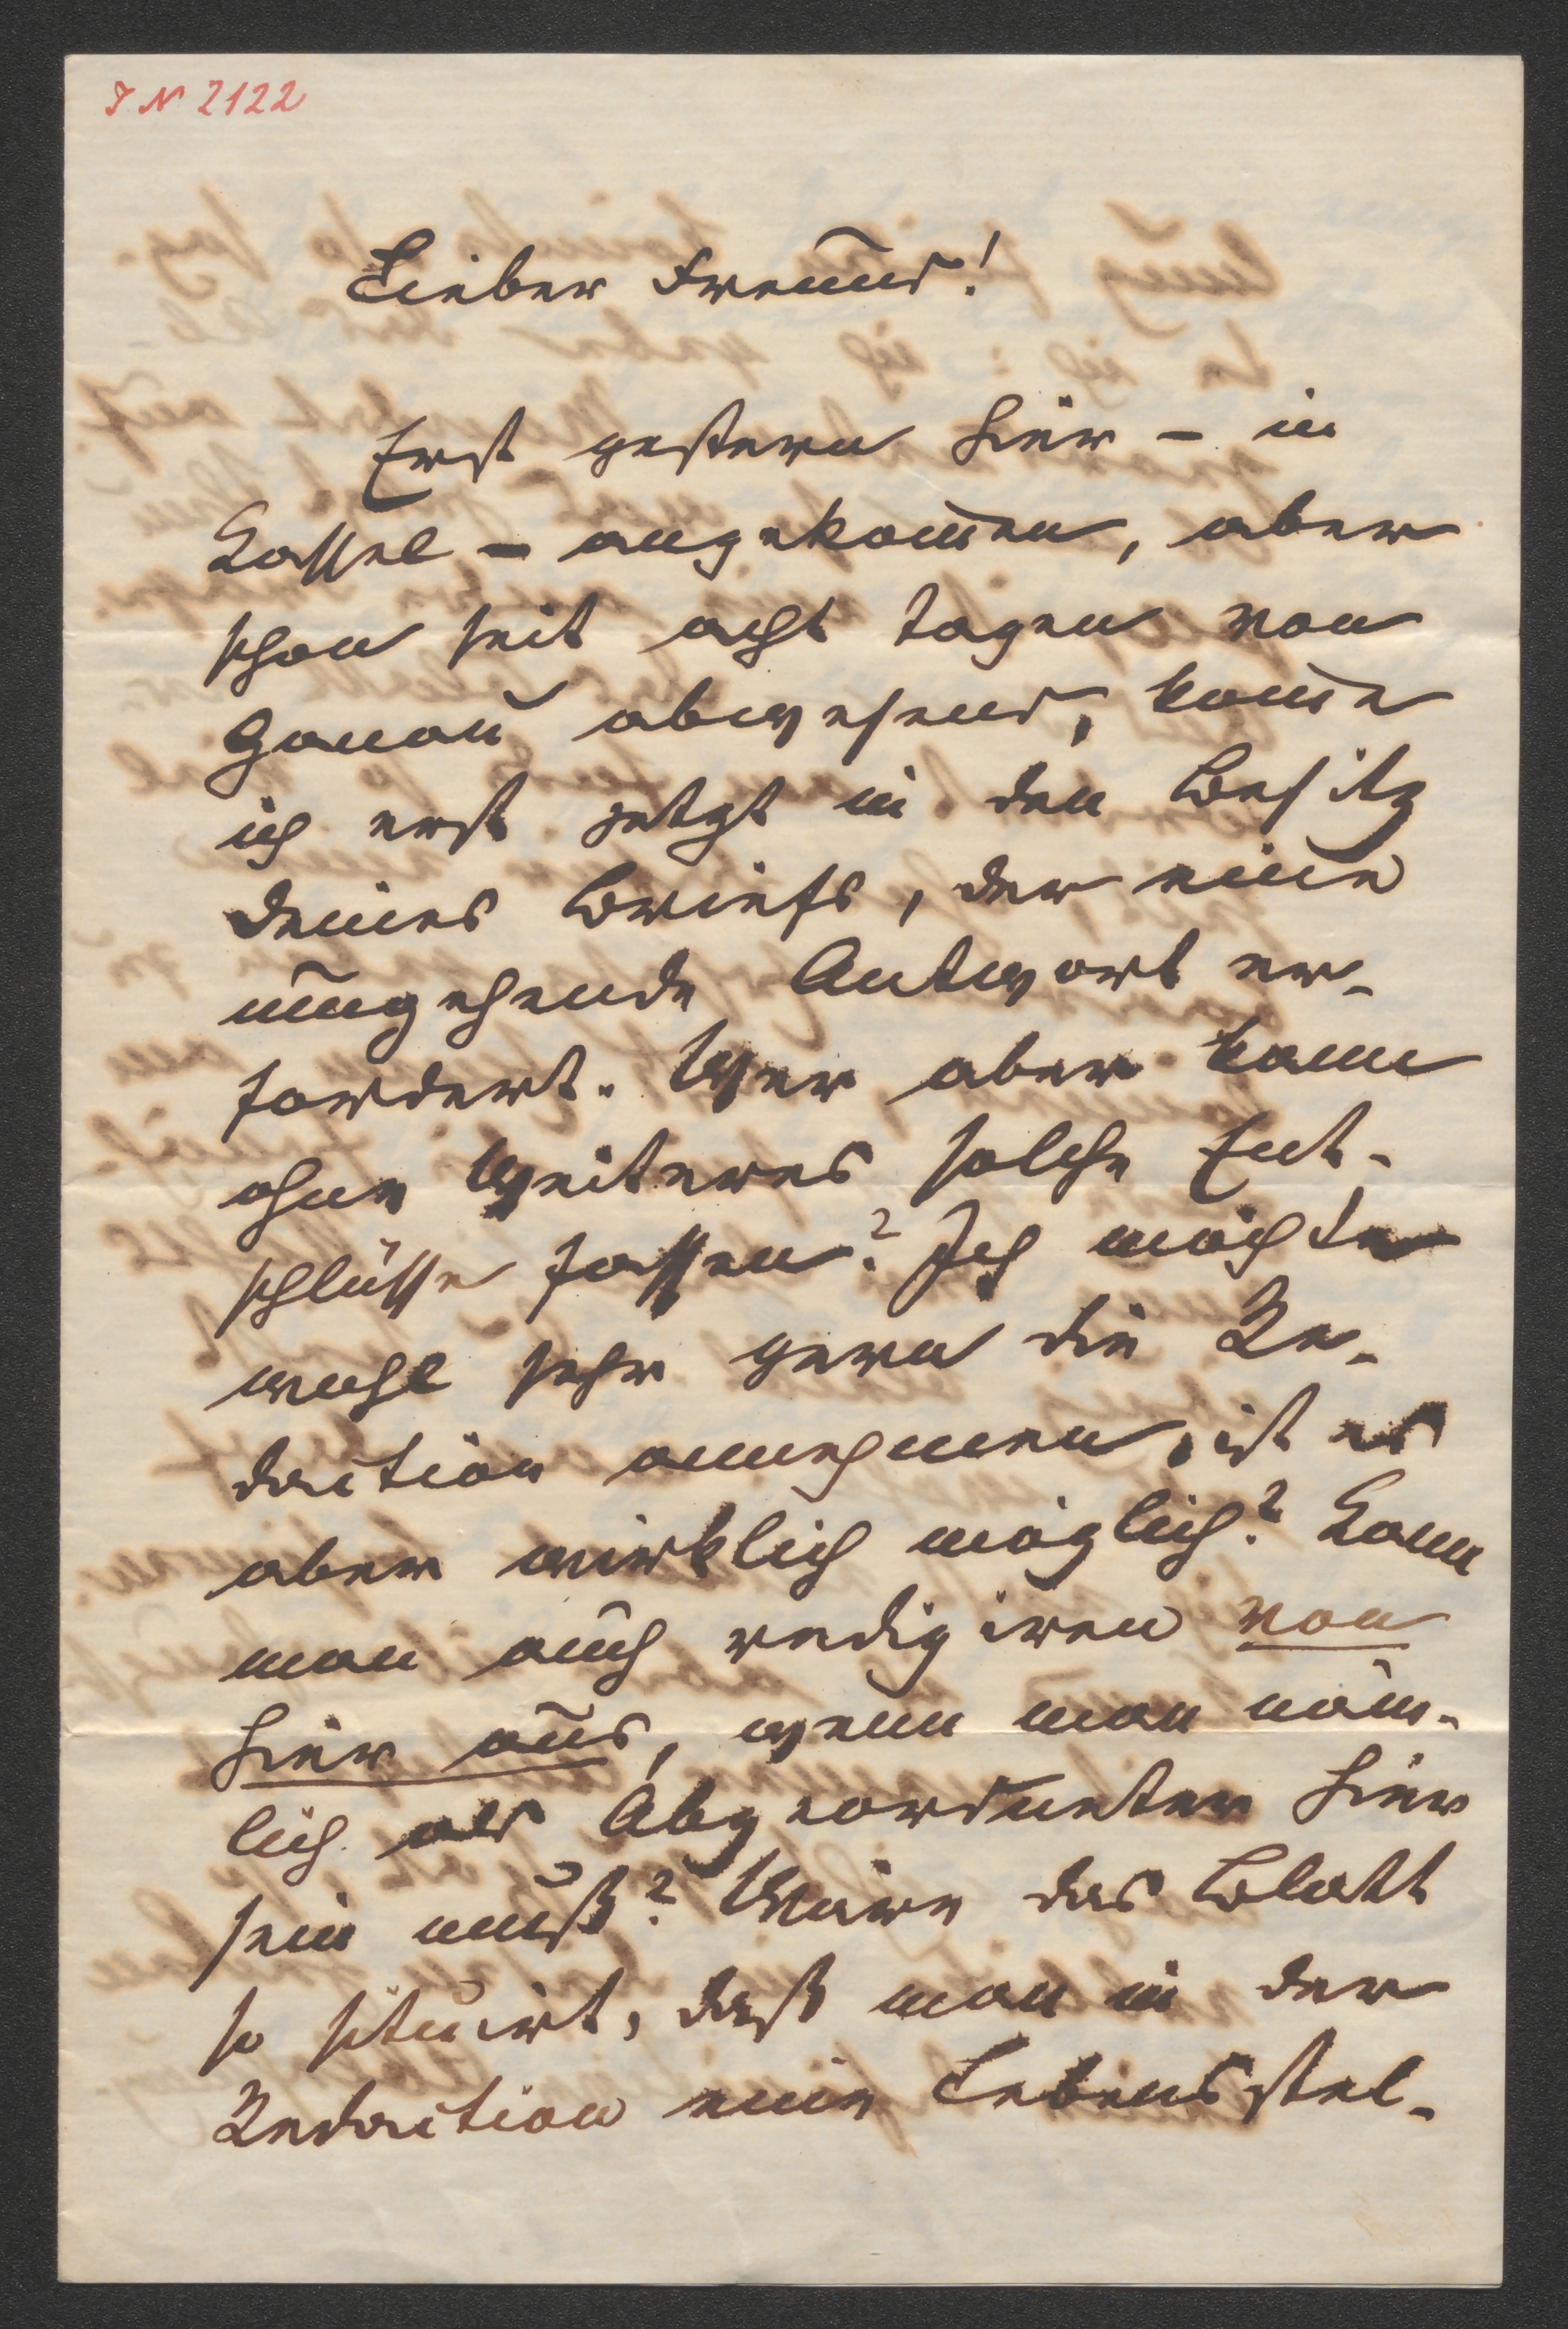 J N 2122
Lieber Freund!
Erst gestern hier – in
Kassel – angekom̄en, aber
schon seit acht Tagen von
Hanau abwesend, kom̄e
ich erst jetzt in den Besitz
deines Briefs, der eine
umgehende Antwort er-
fordert. Wer aber kann
ohne Weiteres solche Ent-
schlüsse fassen? Ich möchte
wohl sehr gern die Re-
daction annehmen, ist es
aber wirklich möglich? Kann
man auch redigiren von
hier aus, wenn man näm-
lich als Abgeordneter hier
sein muß? Wäre das Blatt
so situirt, daß man in der
Redaction eine Lebensstel-